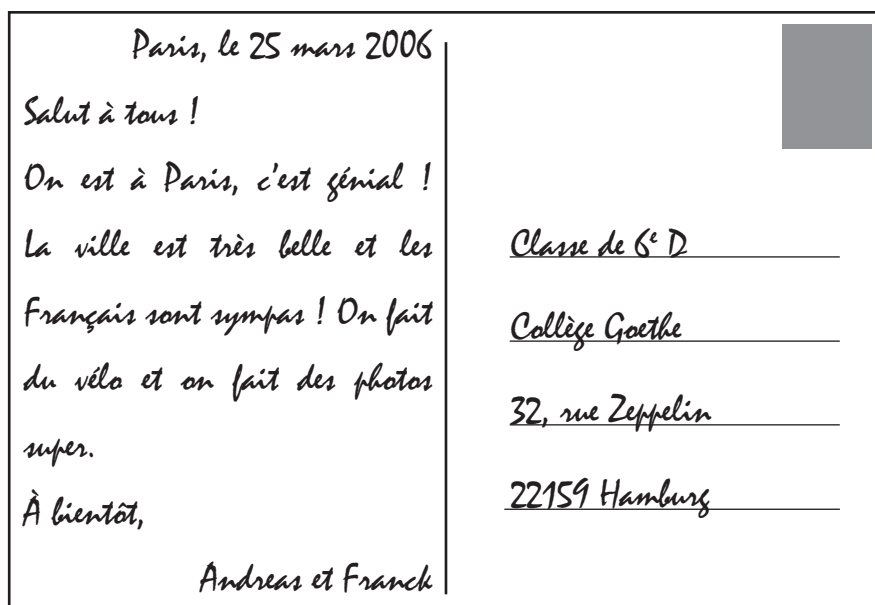 Paris, le 25 mars 2006
Salut à tous !
On est à Paris, c'est génial !
La ville est très belle et les
Français sont sympas ! On fait
du vélo et on fait des photos
super.
À bientôt,
Andreas et Franck
Classe de 6e D
Collège Goethe
32, rue Zeppelin
22159 Hamburg